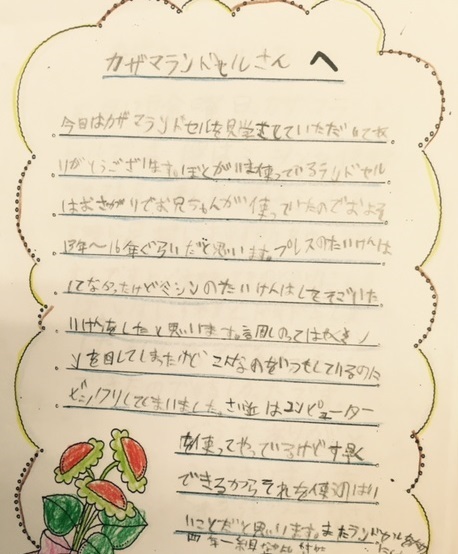 カザマランドセルさん へ
今日はカザマランドセルを見学させていただいて
りがとうございます。ぼくがいま使っているランドセル
はおさがりでお兄ちゃんが使っていたのでおよそ
年〜16年ぐらいだと思います。プレスのたいけんは
してなかったけどミシンのたいけんはしてすごい
をしたと思います。
を目してしまったけど こんなのをいつもしているのは
ビックリしてしまいました。さい近はコンピューター
を使ってやっているけどす早く
できるからそれを使うのはい
いことだと思います。またランドセル
四年一組